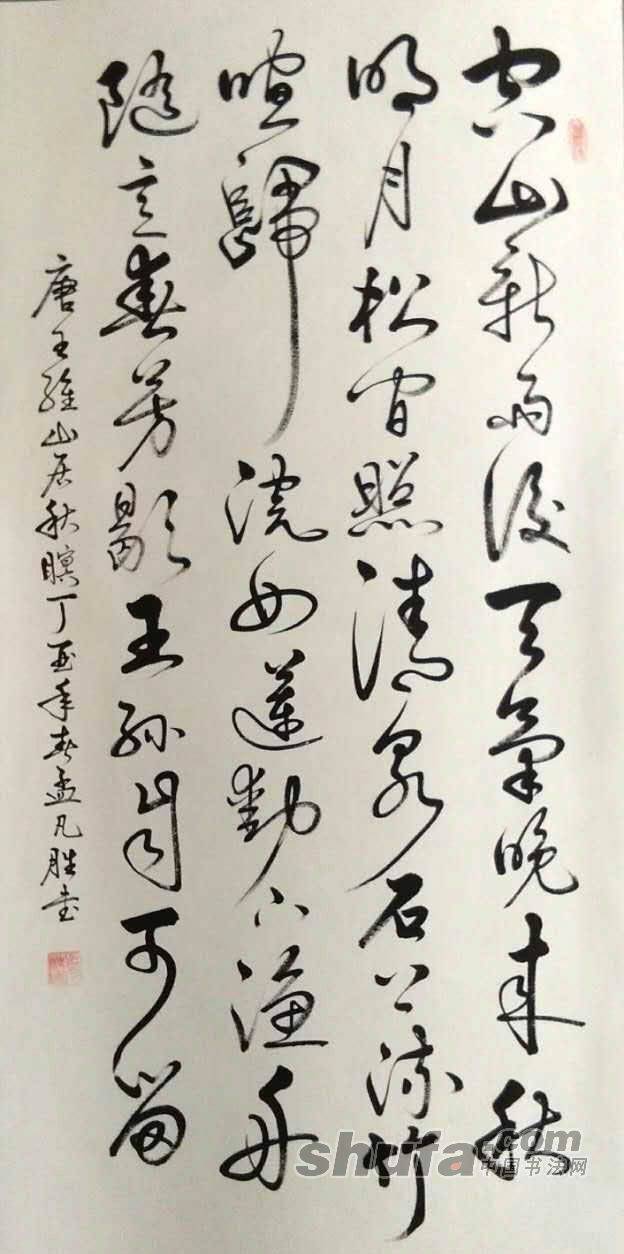 空山新雨後天氣晚來秋
明月松間照清泉石上流竹
喧歸浣女蓮動下漁舟
隨意春芳歇王孫自可留
唐王維山居秋瞑丁酉年春孟凡胜書
shufa.com
中国书法网